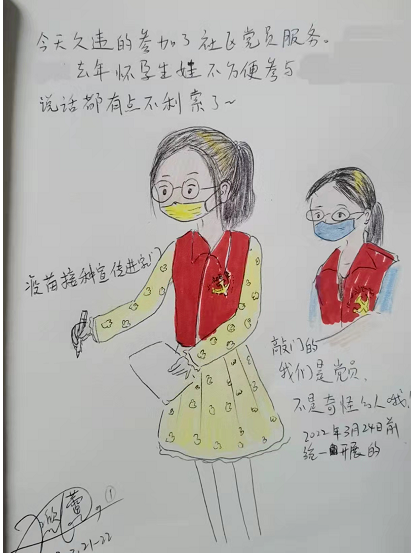 今天久违的参加了社区党员服务。
去年怀孕生娃不方便参与
说话都有点不利索了~
疫苗接种宣传进家门
敲门的
我们是党员,
不是奇怪的人哦!
2022年3月24日前
统一开展的
①
21-22